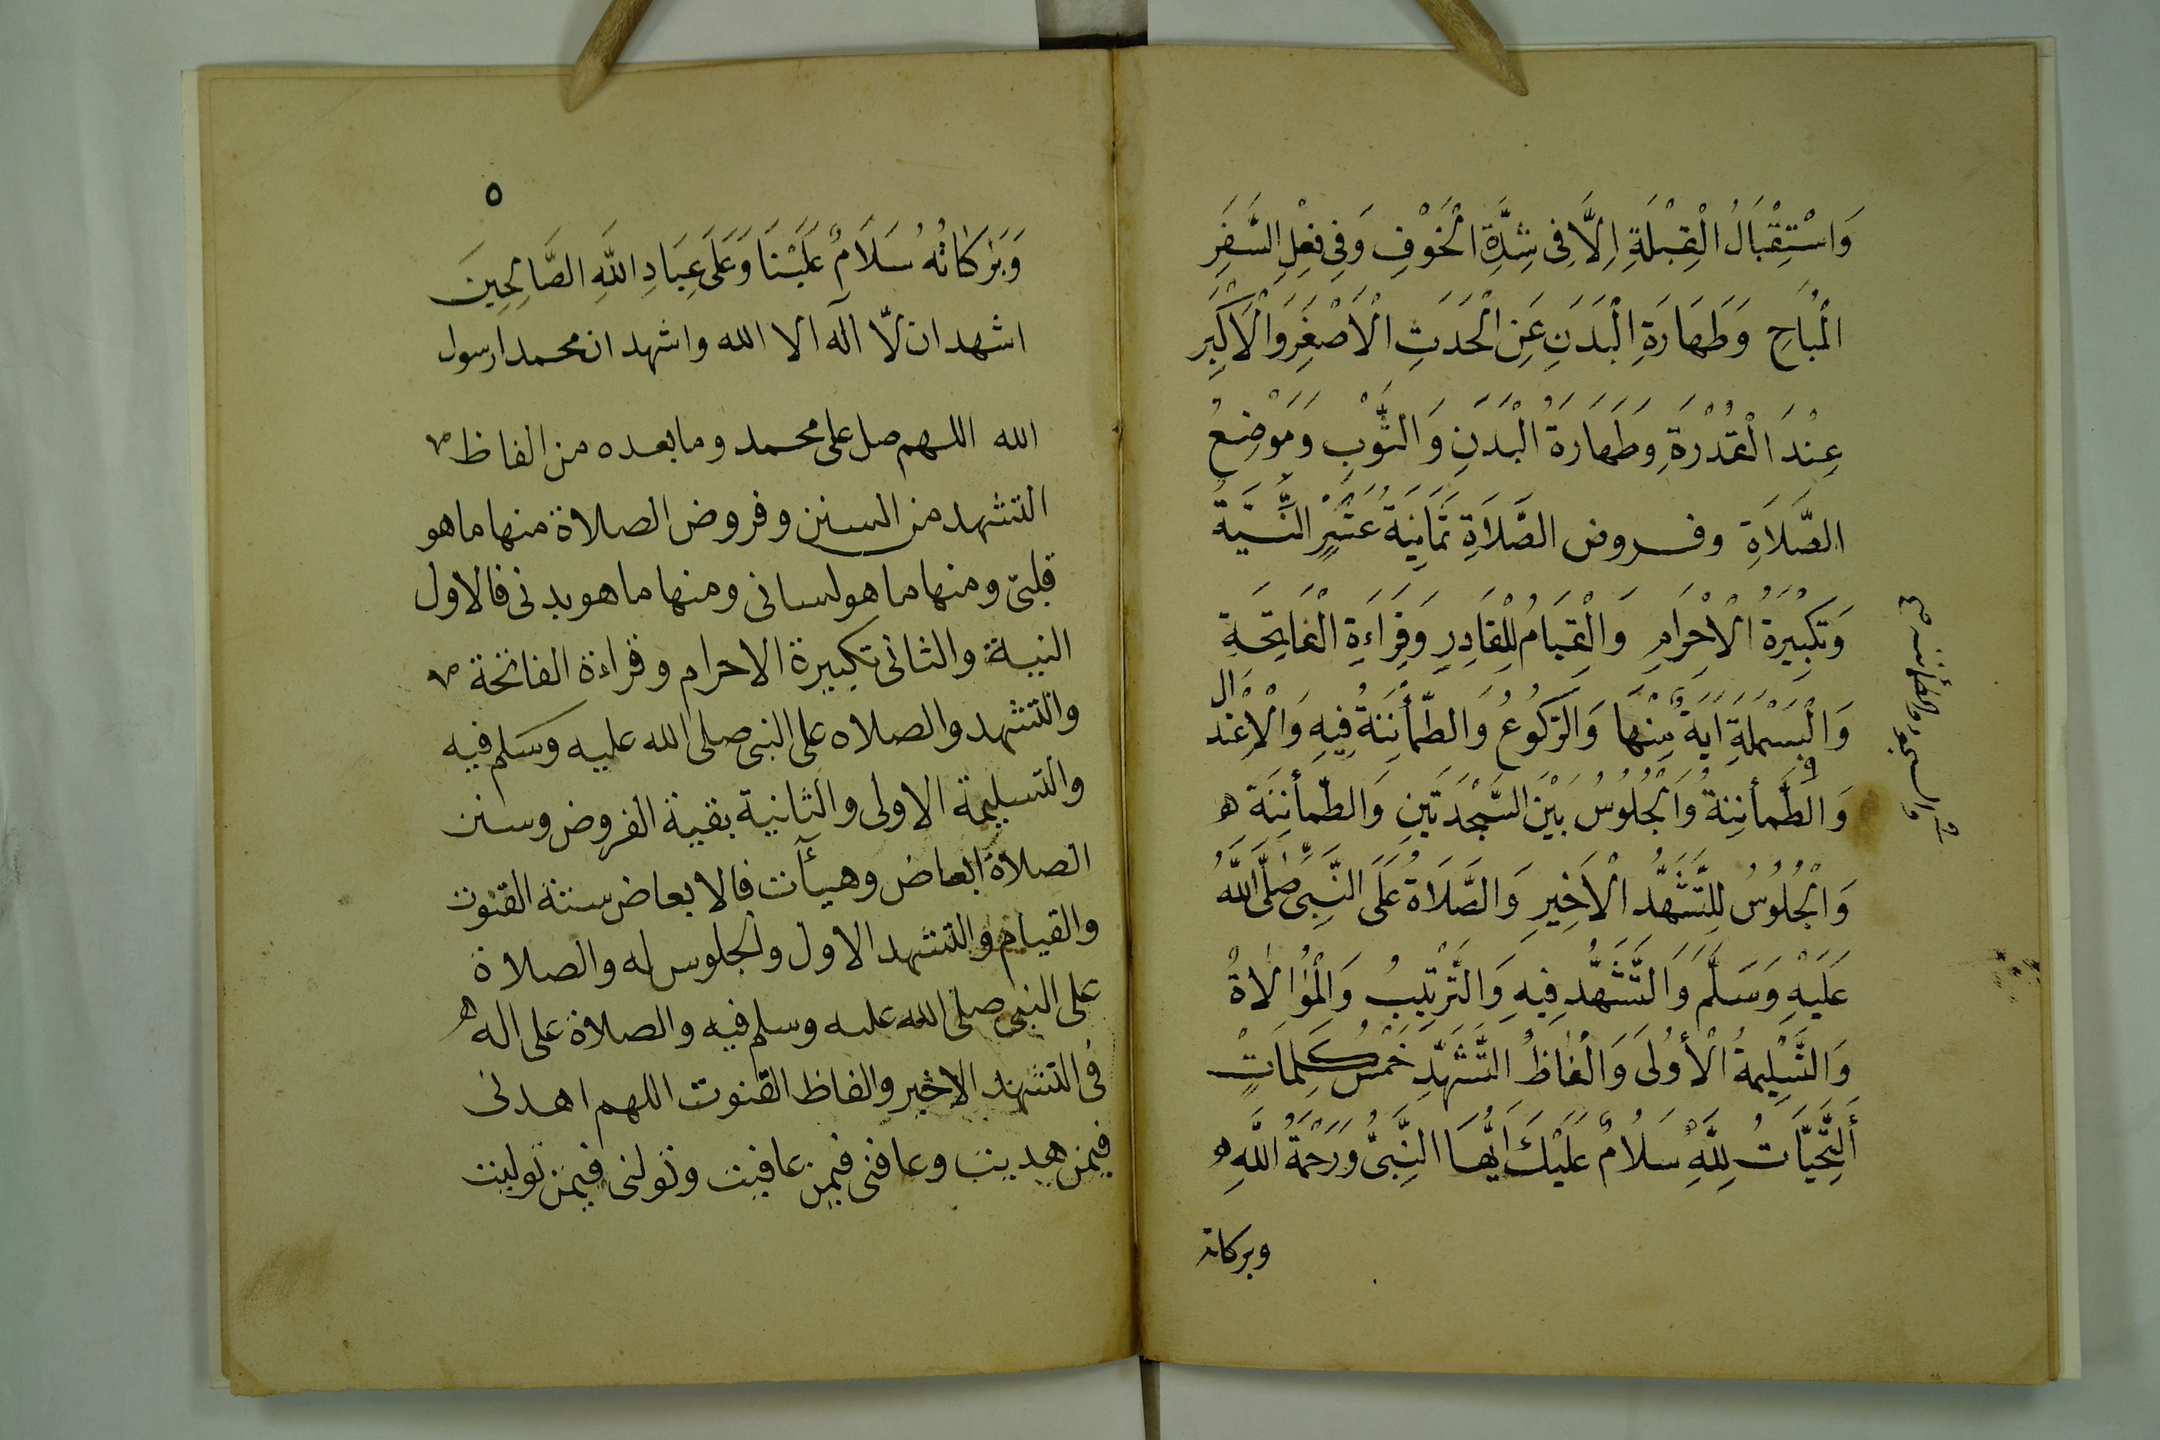 وَاسْتِقْبَالُ الْقِبْلَةِ اِلَّا فِى شِدَّةِ الْخَوْفِ وَفِى فِعْلِ السَّفَرِ
الْمُبَاحِ وَطَهَارَةِ الْبَدَنِ عَنِ الْحَدَثِ الْاَصْغَرِ وَالْاَكْبَرِ
عِنْدَ الْقُدْرَةِ وَطَهَارَةُ الْبَدَنِ وَالثَّوْبِ وَمَوْضِعُ
الصَّلَاةِ وفروض الصَّلَاةِ ثَمَانِيَةُ عَشَرَ النِّيَّةُ
وَتَكْبِيْرَةُ الْاِحْرَامِ وَالْقِيَامُ لِلْقَادِرِ وَقِرَاءَةِ الْفَاتِحَةِ
وَالْبَسْمَلَةِ اَيَةٌ مِنْهَا وَالرُّكُوعُ وَالطُّمَأْنِنَةُ فِيهِ وَالْاِعْتِدَال
وَالطُّمَأْنِنَةُ وَالْجُلُوسُ بَيْنَ السَّجْدَتَيْنِ وَالطُّمَأْنِنَة
والسجود والطمأننه
وَالْجُلُوْسُ لِلتَّشَهُّدِ الْاَخِيْرِ وَالصَّلَاةُ عَلَى النَّبِىِّ صَلَّى اللّٰهُ
عَلَيْهِ وَسَلَّمَ وَالتَّشَهُّدِ فِيهِ وَالتَّرْتِيبُ وَالْمُوَالَاةُ
وَالتَّسْلِيمَةُ الْأُوْلَى وَالْفَاظُ التَّشَهُّدِ خَمْسُ كَلِمَاتٍ
أَلتَّحِيَّاتُ لِلّٰهِ سَلَامٌ عَلَيْكَ اَيُّهَا النَّبِىُّ وَرَحْمَةُ اللّٰهِ
وبركاته
٥
وَبَرَكَاتُهُ سَلَامٌ عَلَيْنَا وَعَلَى عِبَادِ اللّٰهِ الصَّالِحِينَ
اشهد ان لّا آله الا الله واشهد ان محمدا رسول
الله اللهم صل على محمد وما بعده من الفاظ
التشهد من السنن وفروض الصلاة منها ما هو
قلبىّ ومنها ما هو لسانى ومنها ما هو بدنى فالاول
النية والثانى تكبيرة الاحرام وقراءة الفاتحة
والتشهد والصلاه على النبى صلى الله عليه وسلم فيه
والتسليمة الاولى والثانية بقية الفروض وسنن
الصلاة ابعاض وهيآت فالابعاض ستة القنوت
والقيام والتشهد الاول والجلوس له والصلاة
على النبى صلى الله عليه وسلم فيه والصلاة على اله
فى التشهد الاخير والفاظ القنوت اللهم اهدنى
فيمن هديت وعافنى فيمن عافيت وتولنى فيمن توليت